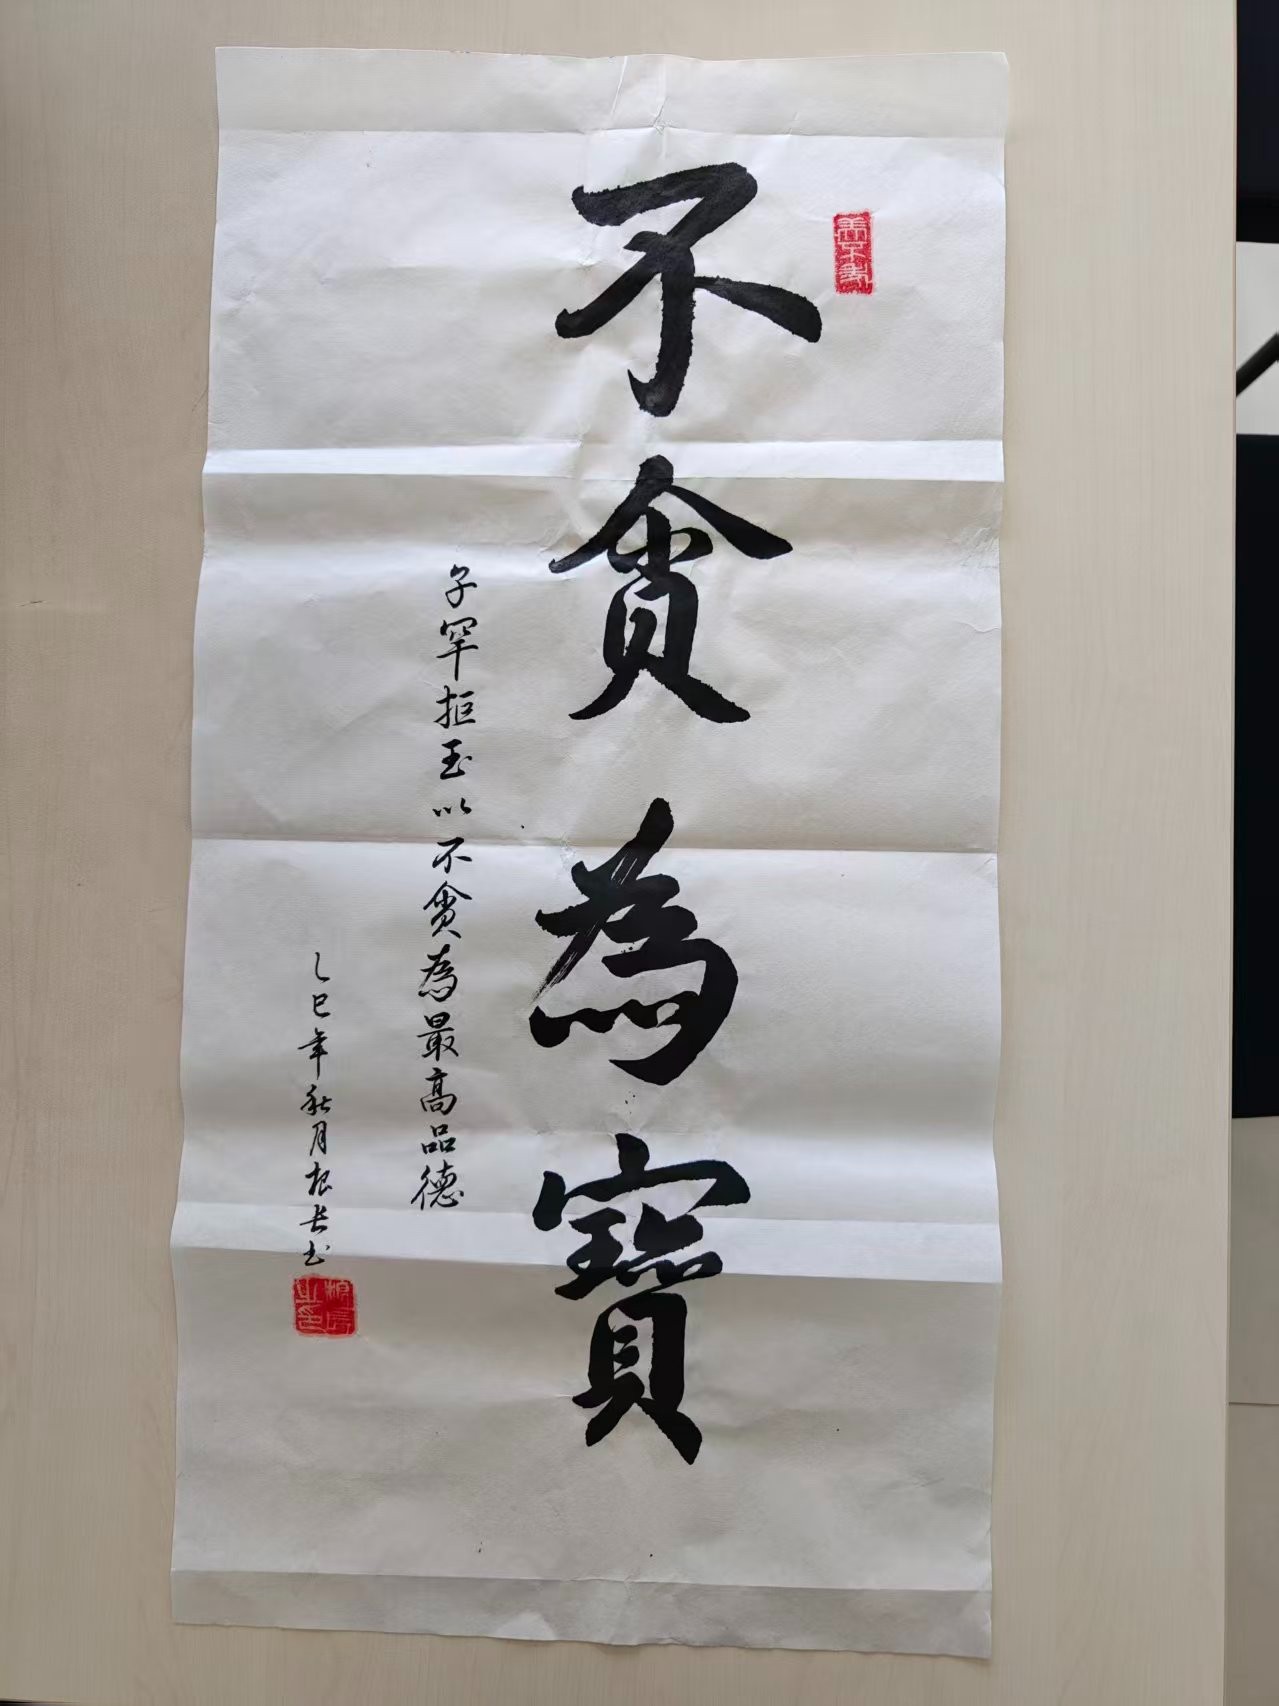 不貪為寶
子罕拒玉以不貪為最高品德
乙巳年秋月根长书